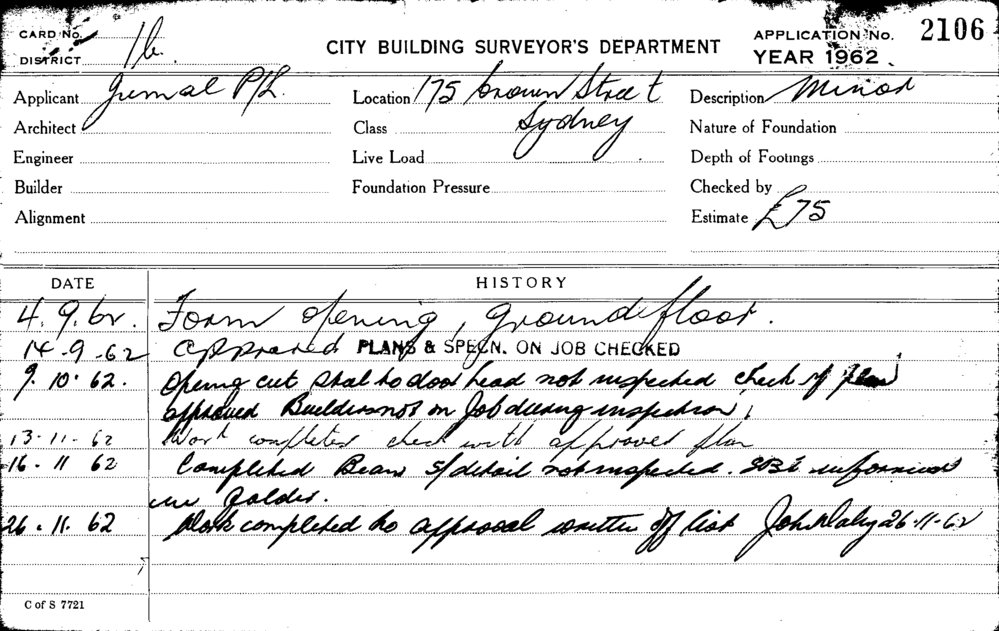 CARD No.
DISTRICT 1b.
CITY BUILDING SURVEYOR'S DEPARTMENT
APPLICATION No. 2106
YEAR 1962
Applicant Jemal P/L.
Location 175 Crown Street
Sydney
Description Minor
Architect
Class
Nature of Foundation
Engineer
Live Load
Depth of Footings
Builder
Foundation Pressure
Checked by
Alignment
Estimate £75
DATE HISTORY
4.9.62. Form opening, ground floor.
14-9-62 Approved PLANS & SPECN. ON JOB CHECKED
9.10.62. Opening cut steel to door head not inspected check if plan
approved Builders not on Job during inspection,
13-11-62 Work completed check with approved plan
16.11 62 Completed Beam s/detail not inspected.
in folder.
26.11.62 Work completed to approval written off list John Daly 26-11-62
C of S 7721